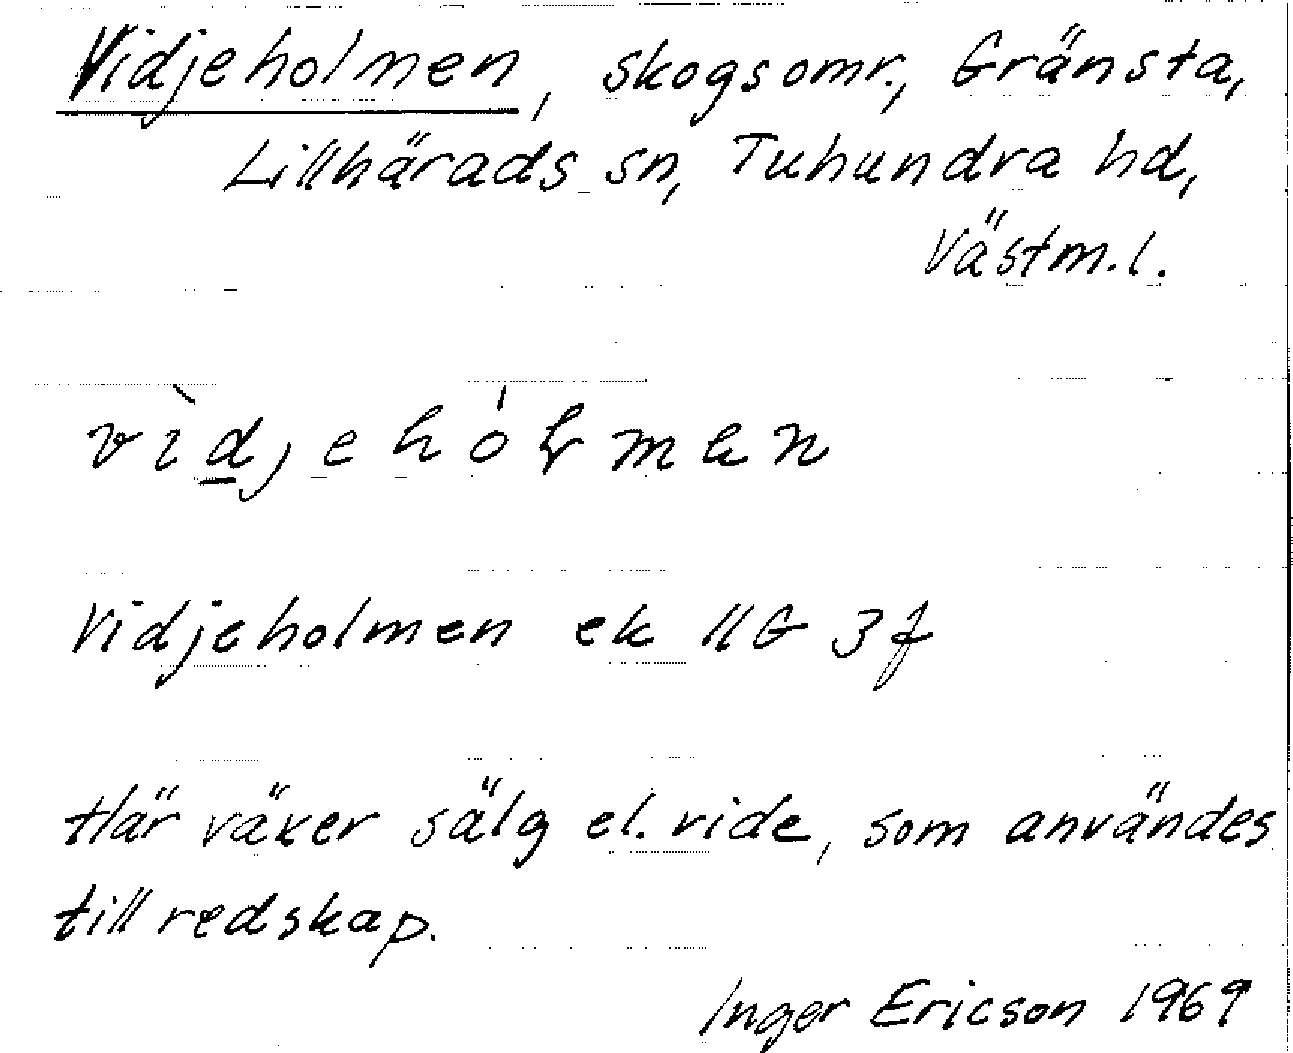 Vidjeholmen, skogsomr., Gränsta,
Lillhärads sn, Tuhundra hd,
Västm.l.
vìdjehóɫmen
Vidjeholmen ek 11G 3f
Här växer sälg el. vide, som användes
till redskap.
Inger Ericson 1969